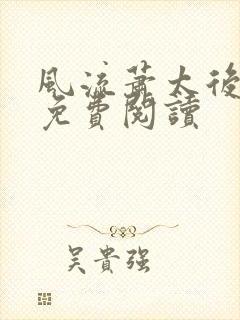 風流蕭太後
免費閱讀
吳貴強